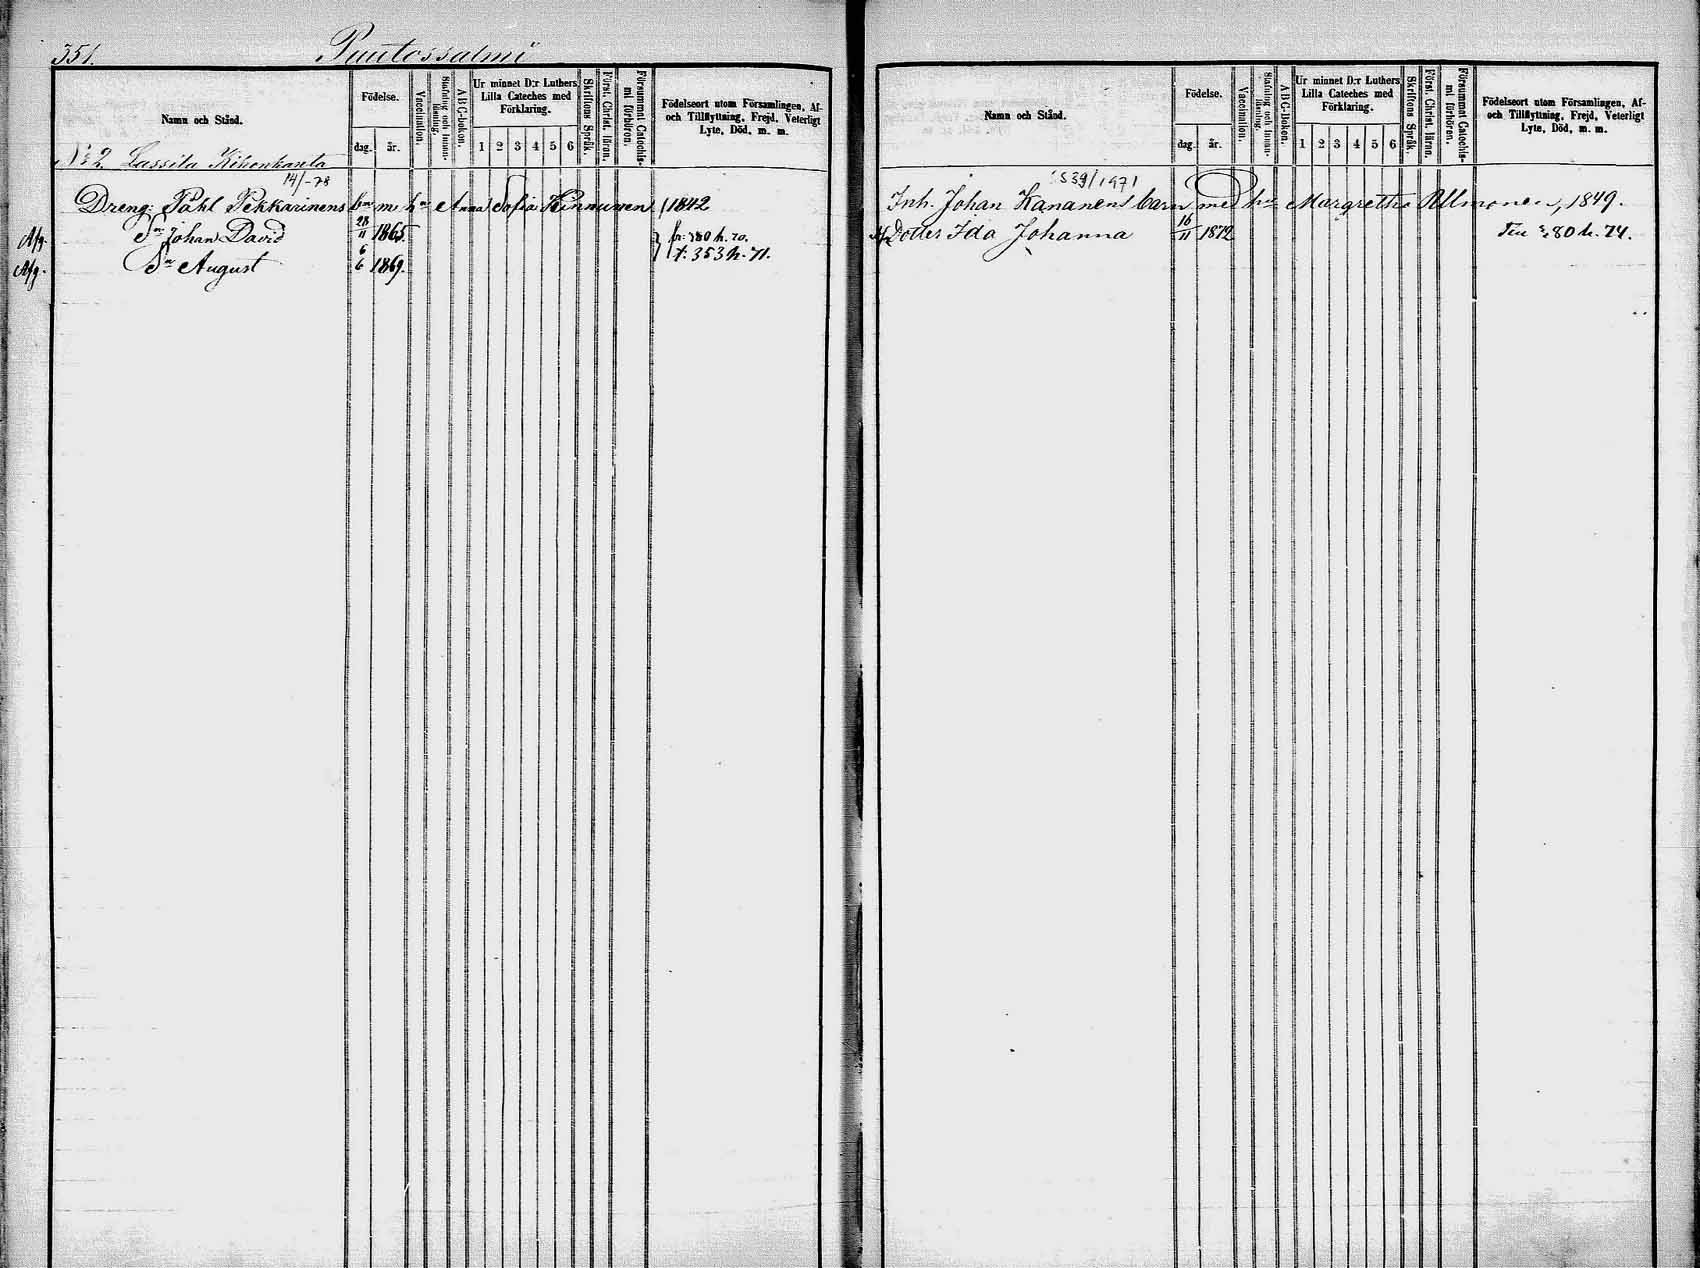 351.
Puutossalmi
Namn och Stånd.
Födelse.
dag. år.
Vaccination.
Stafning och Innanläsning.
ABC-boken.
Ur minnet D:r Luthers Lilla Cateches med Förklaring.
1 2 3 4 5 6
Skriftens Språk.
Först. Christ. läran.
Försummat Catechismi förhören.
Födelseort utom Församlingen, Af- och Tillflyttning, Frejd, Veterligt Lyte, Död, m. m.
N:o 2. Lassila Kihonkanta
14/-78
Dreng: Påhl Pekkarinens barn m. hu Anna Sofia Kinnunen 1842
Afg. Sn Johan David 28/11 1865. fr: 780 h. 70.
Afg. Sn August 6/6 1869. t: 353 h. 71.
Namn och Stånd.
Födelse.
dag. år.
Vaccination.
Stafning och Innanläsning.
ABC-Boken.
Ur minnet D:r Luthers Lilla Cateches med Förklaring.
1 2 3 4 5 6
Skriftens Språk.
Först. Christ. läran.
Försummat Catechismi förhören.
Födelseort utom Församlingen, Af- och Tillflyttning, Frejd, Veterligt Lyte, Död, m. m.
539/1971
Inh. Johan Kananens barn med hu Margretha Ollmonen, 1849.
Dotter Ida Johanna 16/11 1872 80 h. 74.